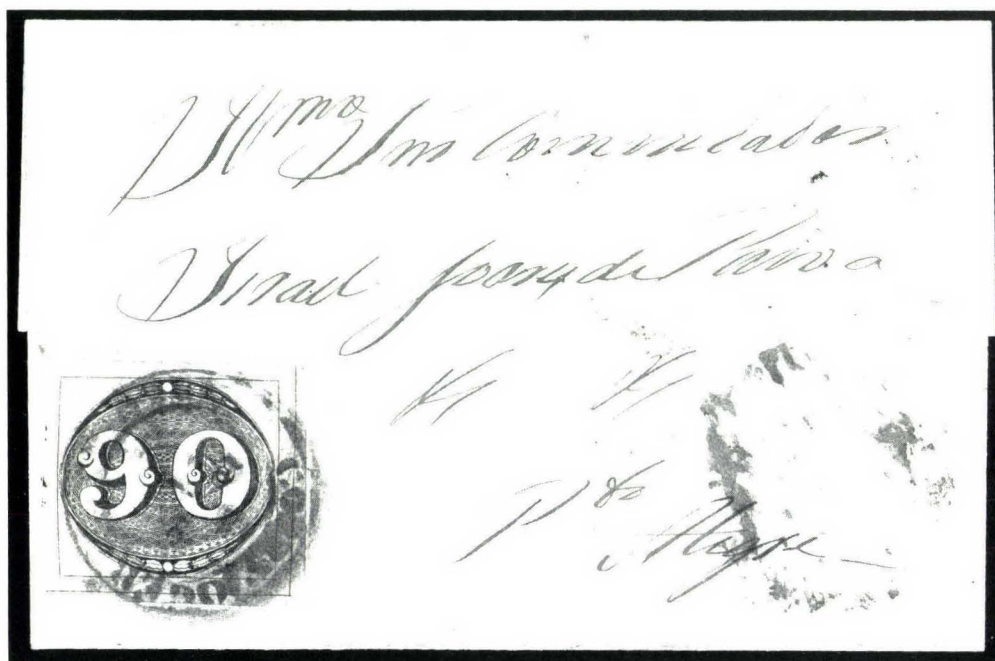 Illmo Snr Comendador
Israel Soares de Paiva
Pto Alegre
90